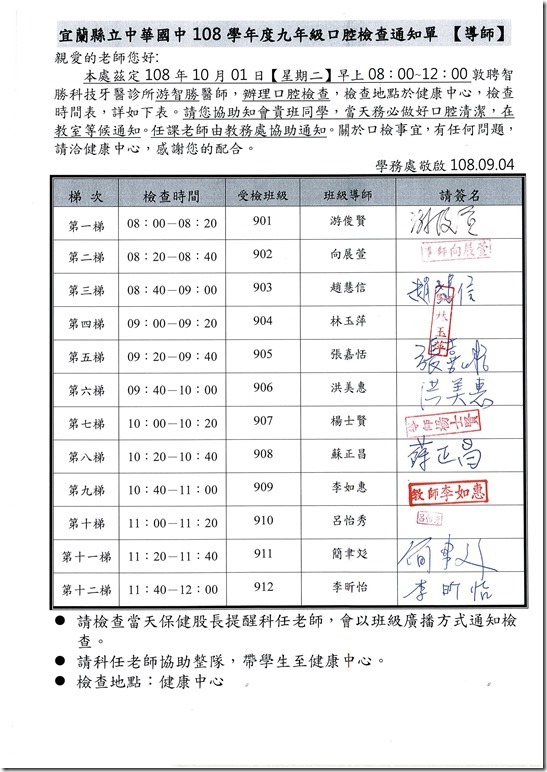 宜蘭縣立中華國中 108 學年度九年級口腔檢查通知單 【導師】
親愛的老師您好:
本處茲定 108 年 10 月 01 日【星期二】早上 08:00~12:00 敦聘智
勝科技牙醫診所游智勝醫師，辦理口腔檢查，檢查地點於健康中心，檢查
時間表，詳如下表。請您協助知會貴班同學，當天務必做好口腔清潔，在
教室等候通知。任課老師由教務處協助通知。關於口檢事宜，有任何問題，
請洽健康中心，感謝您的配合。
學務處敬啟 108.09.04
梯 次 檢查時間 受檢班級 班級導師 請簽名
第一梯 08：00－08：20 901 游俊賢
第二梯 08：20－08：40 902 向展萱 導師向展萱
第三梯 08：40－09：00 903 趙慧信 趙慧信
第四梯 09：00－09：20 904 林玉萍 林玉萍
第五梯 09：20－09：40 905 張嘉恬 張嘉恬
第六梯 09：40－10：00 906 洪美惠 洪美惠
第七梯 10：00－10：20 907 楊士賢 導師楊士賢
第八梯 10：20－10：40 908 蘇正昌 蘇正昌
第九梯 10：40－11：00 909 李如惠 教師李如惠
第十梯 11：00－11：20 910 呂怡秀
第十一梯 11：20－11：40 911 簡聿彣
第十二梯 11：40－12：00 912 李昕怡 李昕怡
● 請檢查當天保健股長提醒科任老師，會以班級廣播方式通知檢
查。
● 請科任老師協助整隊，帶學生至健康中心。
● 檢查地點：健康中心